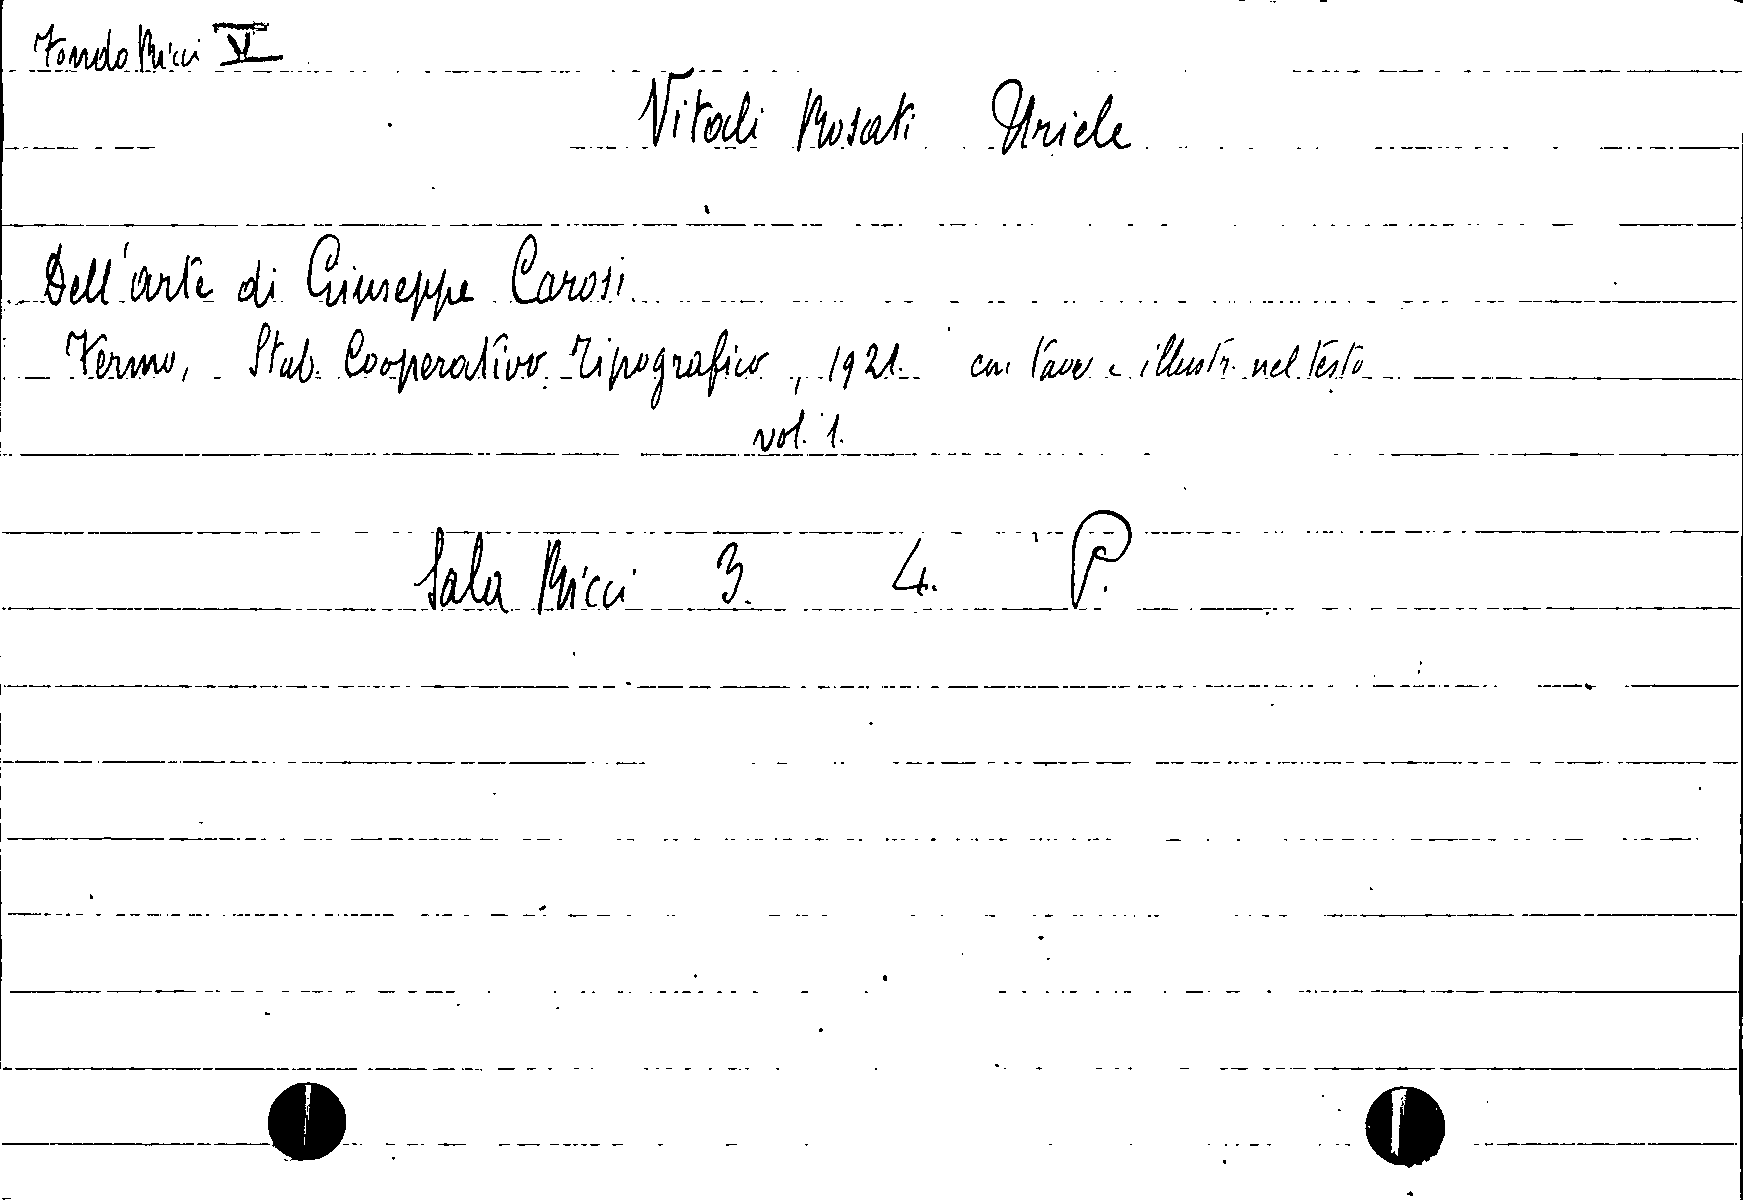 Fondo Ricci VI
Vitali Rosati Uriele
Dell'arte di Giuseppe Carosi.
Fermo, Stab. Cooperativo Tipografico, 1921. con tav. e illustr. nel testo
vol. 1.
Sala Ricci 3. 4. P.